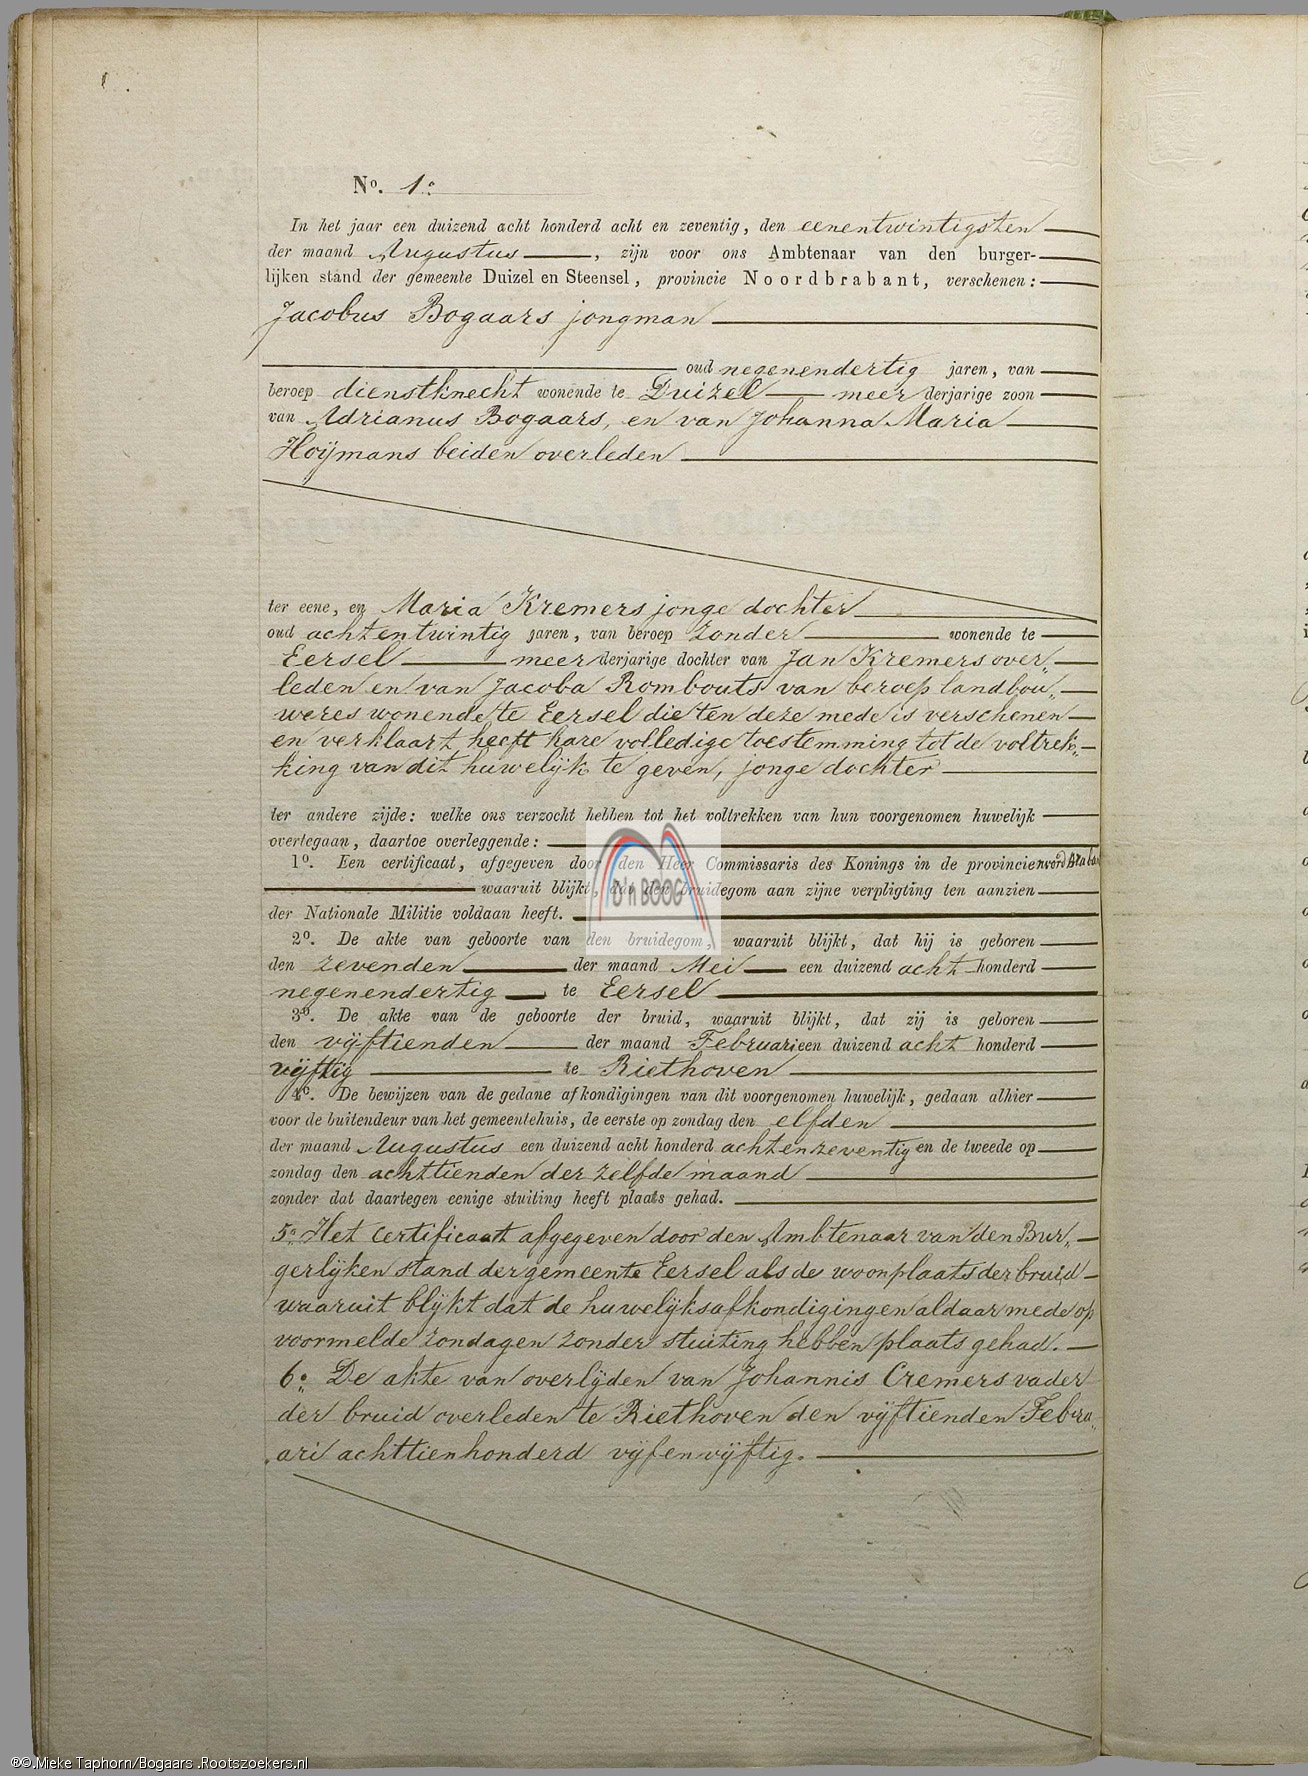 No. 1.
In het jaar een duizend acht honderd acht en zeventig, den eenentwintigsten
der maand Augustus, zijn voor ons Ambtenaar van den burger-
lijken stand der gemeente Duizel en Steensel, provincie Noordbrabant, verschenen:
Jacobus Bogaars jongman
oud negenendertig jaren, van
beroep dienstknecht wonende te Duizel meer derjarige zoon
van Adrianus Bogaars, en van Johanna Maria
Hoijmans beiden overleden
ter eene, en Maria Kremers jonge dochter
oud achtentwintig jaren, van beroep zonder wonende te
Eersel meer derjarige dochter van Jan Kremers over„
leden en van Jacoba Rombouts van beroep landbou„
weres wonende te Eersel die ten deze mede is verschenen
en verklaart heeft hare volledige toestemming tot de voltrek„
king van dit huwelijk te geven, jonge dochter
ter andere zijde: welke ons verzocht hebben tot het voltrekken van hun voorgenomen huwelijk
overtegaan, daartoe overleggende:
1o. Een certificaat, afgegeven door den Heer Commissaris des Konings in de provincie Noord Braban
waaruit blijkt, dat den bruidegom aan zijne verpligting ten aanzien
der Nationale Militie voldaan heeft.
D'n BOOG
2o. De akte van geboorte van den bruidegom, waaruit blijkt, dat hij is geboren
den zevenden der maand Mei een duizend acht honderd
negenendertig te Eersel
3o. De akte van de geboorte der bruid, waaruit blijkt, dat zij is geboren
den vijftienden der maand Februari een duizend acht honderd
vijftig te Riethoven
4o. De bewijzen van de gedane afkondigingen van dit voorgenomen huwelijk, gedaan alhier
voor de buitendeur van het gemeentehuis, de eerste op zondag den elfden
der maand Augustus een duizend acht honderd achtenzeventig en de tweede op
zondag den achttienden der zelfde maand
zonder dat daartegen eenige stuiting heeft plaats gehad.
5o Het certificaat afgegeven door den Ambtenaar van den Bur„
gerlijken stand der gemeente Eersel als de woonplaats der bruid
waaruit blijkt dat de huwelijksafkondigingen aldaar mede op
voormelde zondagen zonder stuiting hebben plaats gehad.
6o De akte van overlijden van Johannis Cremers vader
der bruid overleden te Riethoven den vijftienden Febru„
ari achttienhonderd vijfenvijftig.
®©.Mieke Taphorn/Bogaars .Rootszoekers.nl